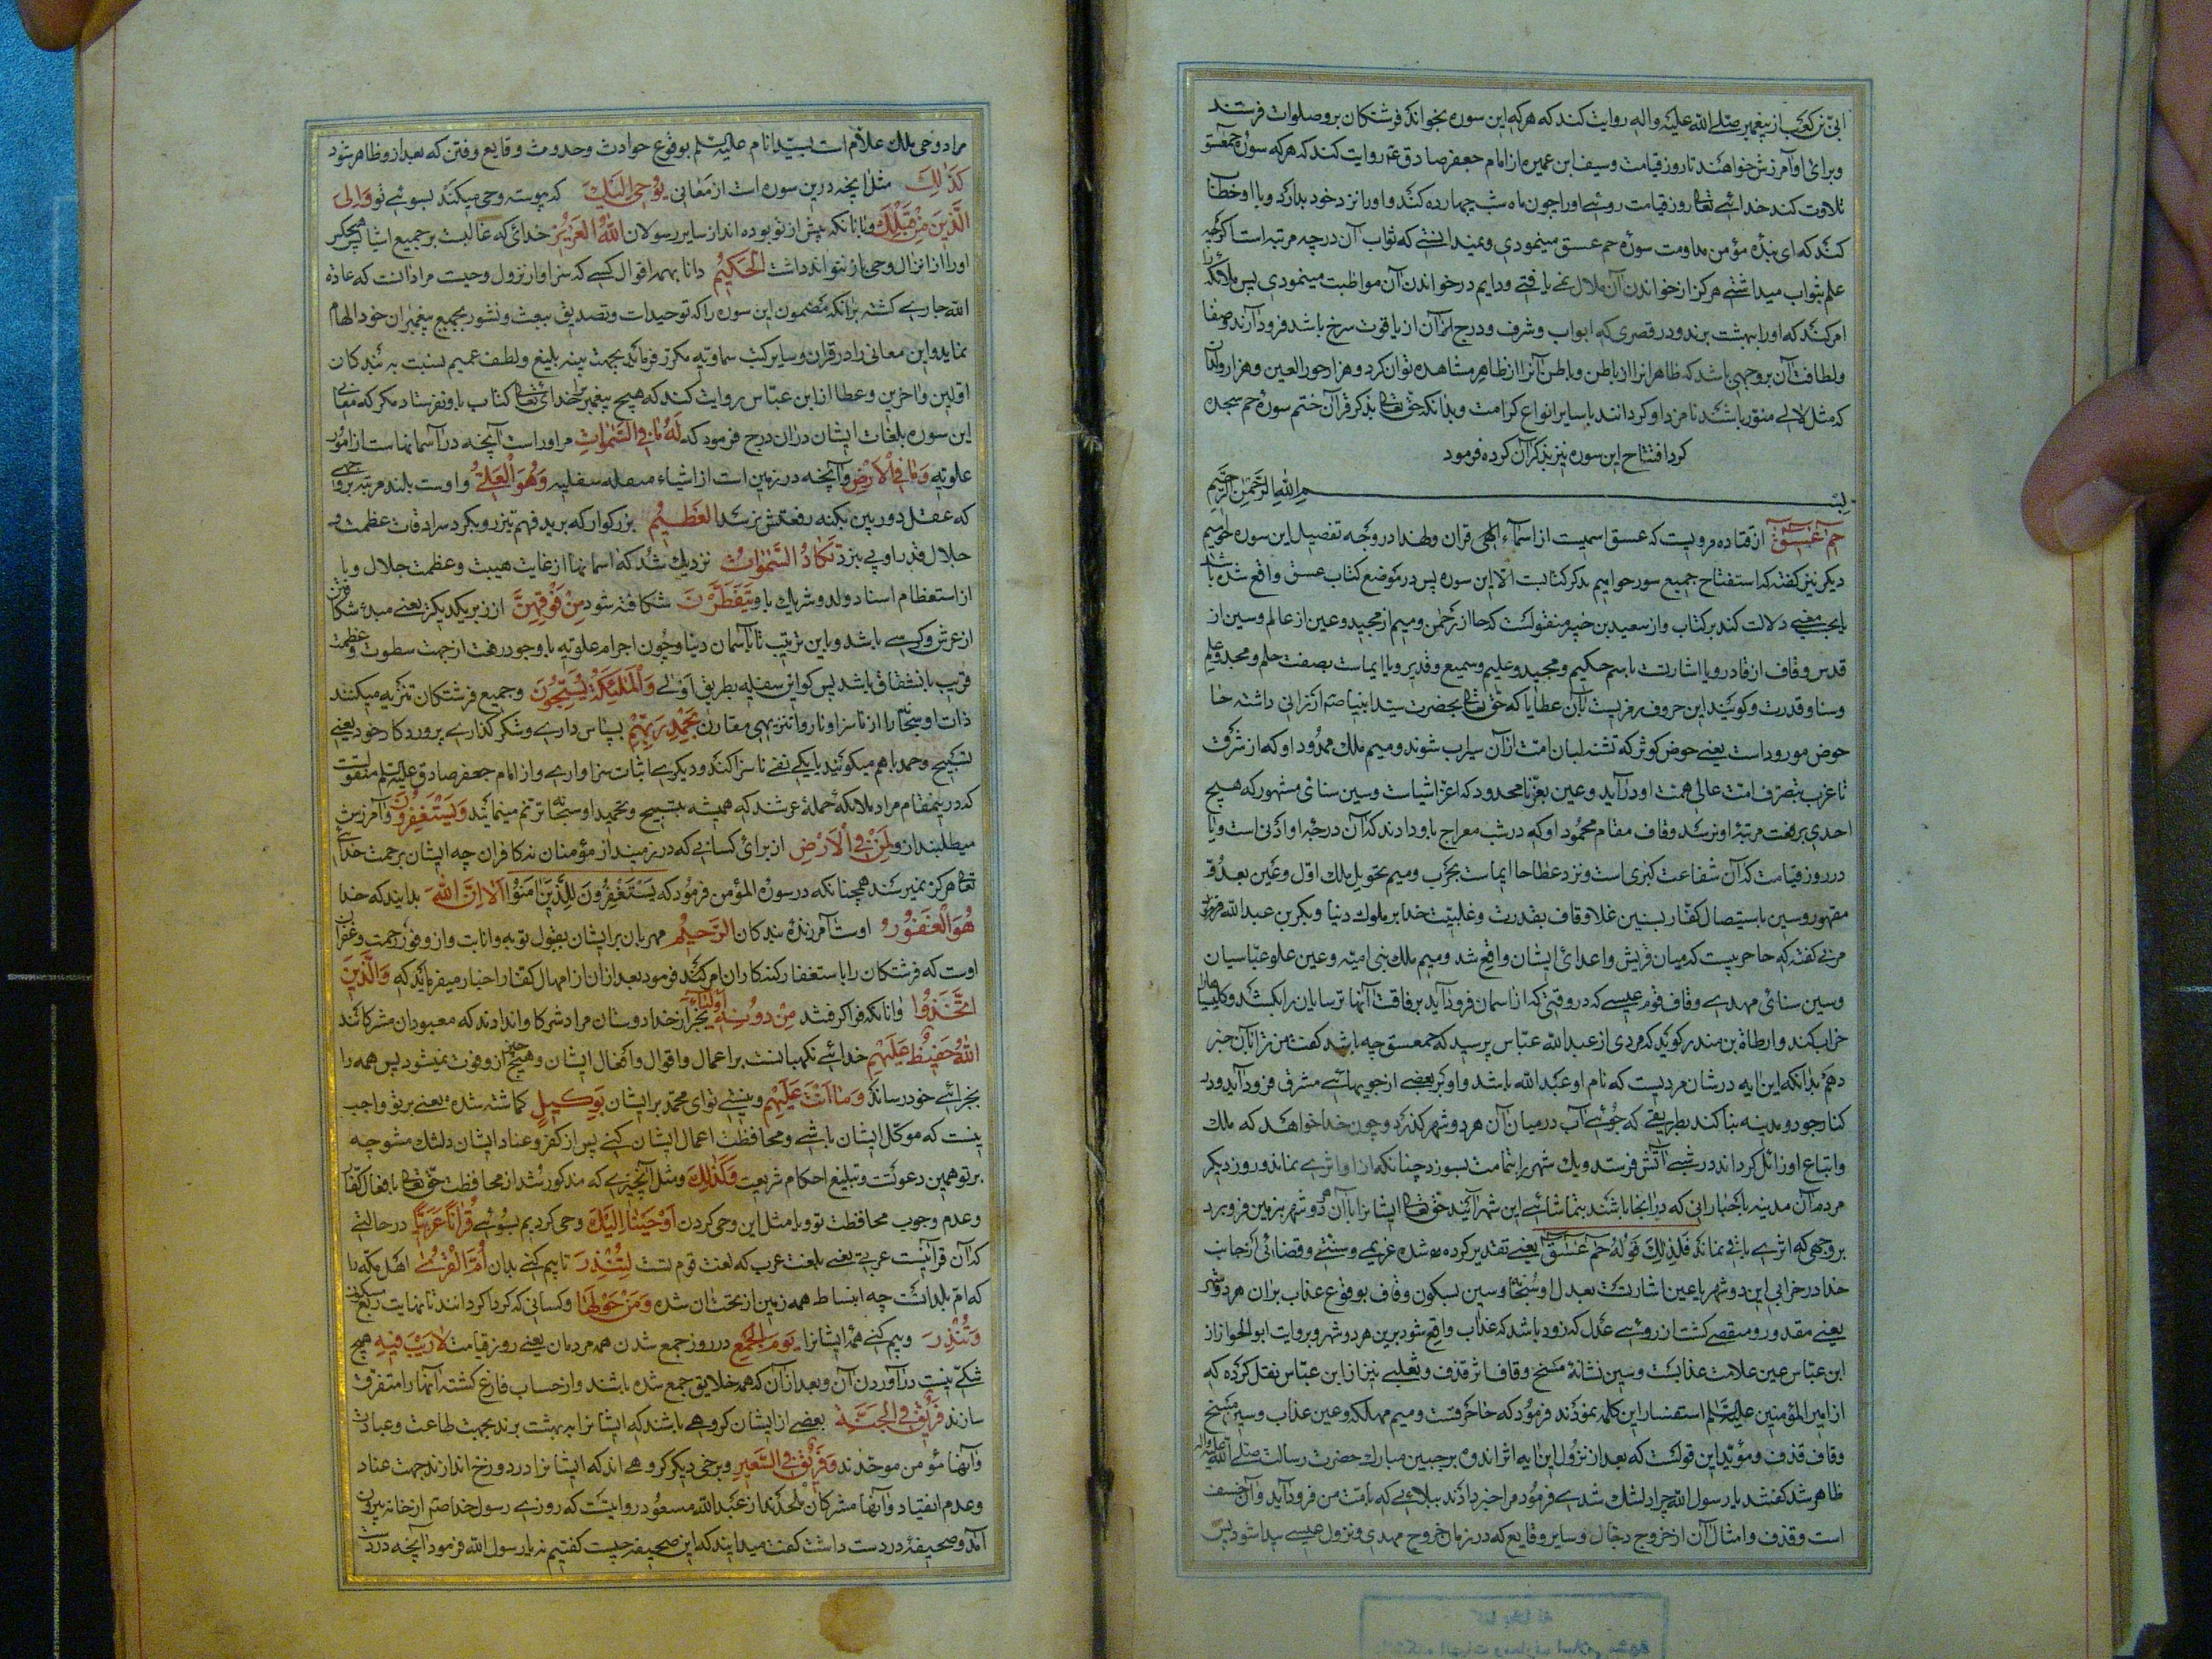 ابی بن کعب از پیغمبر صلی الله علیه واله روایت کند که هر که این سوره بخواند فرشتکان برو صلوات فرستند
وبرای او آمرزش خواهند تا روز قیامت وسیف ابن عمیره از امام جعفر صادق ع روایت کند که هر که سوره حمعسق
تلاوت کند خدائی تعالی روز قیامت روی او را چون ماه شب چهارده کند و او را نزد خود بدارد وبا او خطاب
کند که ای بنده مؤمن مداومت سوره حم عسق مینمودی ونمیدانستی که ثواب آن درچه مرتبه است اگرچه
علم بثواب میداشتی هرکز از خواندن آن ملال نمی یافتی ودایم در خواندن آن مواظبت مینمودی پس ملائکه را
امر کند که او را ببهشت برند ودر قصری که ابواب وشرف ودرج آن از یاقوت سرخ باشد فرود آرند وصفا
ولطافت آن بروجهی باشد که ظاهر انرا از باطن وباطن آنرا از ظاهر مشاهده توان کرد وهزار حور العین وهزار ولدان
که مثل لالی منثور باشند نامزد او کردانند با سایر انواع کرامت وبدانکه حق تعالی بذکر قرآن ختم سوره حم سجده
کرد افتتاح این سوره نیز بذکر آن کرده فرمود
بسم الله الرحمن الرحیم
حم عسق از قتاده مرویست که عسق اسمیت از اسماء الهی قران ولهذا در وجه تفصیل این سوره حوامیم
دیکر نیز کفته که استفتاح جمیع سور حوامیم بذکر کتابت الا این سوره پس در موضع کتاب عسق واقع شده باشد
دلالت کند بر کتاب واز سعید بن جبیر منقولست که حا از رحمن ومیم از مجید وعین از عالم وسین از
قدس وقاف از قادر ویا اشاریت باسم حکیم ومجید وعلیم وسمیع وقدیر ویا ایماست بصفت حلم ومجد وعلم
وسنا وقدرت وکویند این حروف رمزیست بان عطایا که حق تعالی بحضرت سید انبیا صلعم ارزانی داشته حا
حوض مورود است یعنی حوض کوثر که تشنه لبان امت از آن سیراب شوند ومیم ملک ممدود او که از شرق
تا غرب بتصرف امت عالی همت او درآید وعین بعز نامحدود که اعز اشیاست وسین سنای مشهور که هیچ
احدی برفعت مرتبه او نرسد وقاف مقام محمود او که در شب معراج باو دادند که آن درجه او ادنی است ویا
در روز قیامت که آن شفاعت کبری است ونزد عطا حا ایماست بحرب ومیم بتحویل ملک اول وعین بعدو
مقهور وسین باستیصال کفار بسنین غلا وقاف بقدرت وغلبت خدا بر ملوک دنیا وبکر بن عبد الله
مزنی کفته که حا حربیست که میان قریش واعدای ایشان واقع شد ومیم ملک بنی امیه وعین علو عباسیان
وسین سنای مهدی وقاف قوم عیسی که در وقتی که از اسمان فرود آید برفاقت آنها ترسایان را بکشد وکلیسا
خراب کند وارطاة بن منذر کوید که مردی از عبد الله عباس پرسید که حمعسق چه باشد کفت من ترا بآن خبر
دهم بدانکه این ایه در شان مردیست که نام او عبد الله باشد واو بر بعضی از جویهای مشرق فرود آید ودر
کنار جو دو مدینه بنا کند بطریقی که جوی آب در میان آن هر دو شهر کذرد وچون خدا خواهد که ملک
واتباع او زائل کرداند در شبی آتش فرستد ویک شهر را بتمامت بسوزد چنانکه از او اثری نماند وروز دیکر
مردمان آن مدینه با جبارانی که در آنجا باشند بتماشای این شهر آیند حق تعالی ایشانرا با آن دو شهر بزمین فرو برد
بر وجهی که اثری باقی نماند فلذلک قوله حم عسق یعنی تقدیر کرده شده عزیمه وسنتی وقضائی از جانب
خدا در خرابی این دو شهر یا عین اشارت بعدل او سبحانه وسین بسیکون وقاف بوقوع عذاب بران هر دو شهر
یعنی مقدور ومقضی کشت از روی عدل که زود باشد که عذاب واقع شود برین هر دو شهر وبروایت ابو الجوزا از
ابن عباس عین علامت عذابست وسین نشانه مسخ وقاف اثر قذف وثعلبی نیز از ابن عباس نقل کرده که
از امیر المؤمنین علیه السلم استفسار این کلمه نمودند فرمود که حا حرقست ومیم مهلکه وعین عذاب وسین مسخ
وقاف قذف ومؤید این قولست که بعد از نزول این ایه اثر اندوه بر جبین مبارک حضرت رسالت صلی الله علیه واله
ظاهر شد کفتند یا رسول الله چرا دلتنک شدی فرمود مرا خبر دادند ببلائی که بامت من فرود آید وآن خسف
است وقذف وامثال آن از خروج دجال وسایر وقایع که در زمان خروج مهدی ونزول عیسی پیدا شود پس
مراد وحی ملک علام است بسید انام علیه السلم بوقوع حوادث وحدوث وقایع وفتن که بعد از و ظاهر شود
کذلک مثل آنچه درین سوره است از معانی یوحی الیک که پیوسته وحی میکند بسوی تو والی
الذین من قبلک وبانانکه پیش از تو بوده اند از سایر رسولان الله العزیز خدائی که غالبست بر جمیع اشیا پس هیچکس
او را از انزال وحی باز نتواند داشت الحکیم دانا بهمه اقوال کسی که سزاوار نزول وحیست مراد انست که عادة
الله جاری کشته برانکه مضمون این سوره را که توحید است وتصدیق ببعث ونشور بجمیع پیغمبران خود الهام
نماید واین معانی را در قران وسایر کتب سماویه مکرر فرماید بجهت تنبیه بلیغ ولطف عمیم نسبت به بندکان
اولین واخرین وعطا از ابن عباس روایت کند که هیچ پیغمبر را خدای تعالی کتاب باو نفرستاد مکر که معانی
این سوره بلغات ایشان دران درج فرمود که له ما فی السموات مر او راست آنچه در آسمانهاست از امور
علویه وما فی الارض وآنچه در زمین است از اشیاء سفلیه وهو العلی واوست بلند مرتبه بر وجهی
که عقل دوربین بکنه رفعتش نرسد العظیم بزرکوار که برید فهم تیزرو بکرد سرادقات عظمت و
جلال قدر او پی نبرد تکاد السموات نزدیک شد که اسمانها از غایت هیبت وعظمت جلال ویا
از استعظام اسناد ولد وشریک باو یتفطرن شکافته شود من فوقهن از زبر یکدیکر یعنی مبدء شکافتن
از عرش وکرسی باشد وباین ترتیب تا بآسمان دنیا وچون اجرام علویه با وجود رفعت از جهت سطوت وعظمت
قریب بانشقاق باشد پس کواین سفلیه بطریق اولی والملئکة یسبحون وجمیع فرشتکان تنزیه میکنند
ذات او سبحانه را از ناسزا وناروا تنزیهی مقارن بحمد ربهم بسپاس داری وشکر کذاری پروردکار خود یعنی
تسبیح وحمد باهم میکویند یکی نفی ناسزا کند ودیکری اثبات سزاواری واز امام جعفر صادق علیه السلم منقولست
که درینمقام مراد ملائکه حمله عرشند که همیشه بتسبیح وتحمید او سبحانه ترنم مینمایند ویستغفرون وآمرزش
میطلبند از و لمن فی الارض از برای کسانی که در زمینند از مؤمنان نه کافران چه ایشان برحمت خدای
تعالی هرکز نمیرسند همچنانکه در سوره المؤمن فرمود که یستغفرون للذین امنوا الا ان الله بدانید که خدا
هو الغفور اوست آمرزنده بندکان الرحیم مهربان بر ایشان بقبول توبه وانابت واز وفور رحمت وغفران
اوست که فرشتکان را باستغفار کنه کاران امر کند فرمود بعد از ان از امهال کفار اخبار میفرماید که والذین
اتخذوا وانانکه فرا کرفتند من دونه اولیاء بجز از خدا دوستان مراد شرکا وانداد ند که معبودان مشرکانند
الله حفیظ علیهم خدائی نکهبانست بر اعمال واقوال وافعال ایشان وهیچ چیز ازو فوت نمیشود پس همه را
بجزائی خود رساند وما انت علیهم ونیستی تو ای محمد بر ایشان بوکیل کماشته شده یعنی بر تو واجب
نیست که موکل ایشان باشی ومحافظت اعمال ایشان کنی پس از کفر وعناد ایشان دلتنک مشو چه
بر تو همین دعوتست وتبلیغ احکام شریعت وکذلک ومثل آنچیزی که مذکور شد از محافظت حق تعالی بافعال کفار
وعدم وجوب محافظت تو ویا مثل این وحی کردن اوحینا الیک وحی کردیم بسوی تو قرانا عربیا در حالتی
که آن قرآنیست عربی یعنی بلغت عرب که لغت قوم تست لتنذر تا بیم کنی بدان ام القری اهل مکه را
که ام بلدانست چه انبساط همه زمین از تحت ان شده ومن حولها وکسانی که کرداکردانند تا نهایت ربع مسکون
وتنذر وبیم کنی همه ایشانرا یوم الجمع در روز جمع شدن همه مردمان یعنی روز قیامت لا ریب فیه هیچ
شکی نیست در آوردن آن وبعد از آن که همه خلایق جمع شده باشند واز حساب فارغ کشته آنها را متفرق
سازند فریق فی الجنة بعضی از ایشان کروهی باشند که ایشانرا ببهشت برند بجهت طاعت وعبادت
وآنها مؤمن موحدند وفریق فی السعیر وبرخی دیکر کروهی اند که ایشانرا در دوزخ اندازند بجهت عناد
وعدم انقیاد وآنها مشرکان وملحدند از عبد الله مسعود روایتست که روزی رسول خدا صلعم از خانه بیرون
آمد وصحیفه در دست داشت کفت میدانید که این صحیفه چیست کفتیم نه یا رسول الله فرمود آنچه در دست